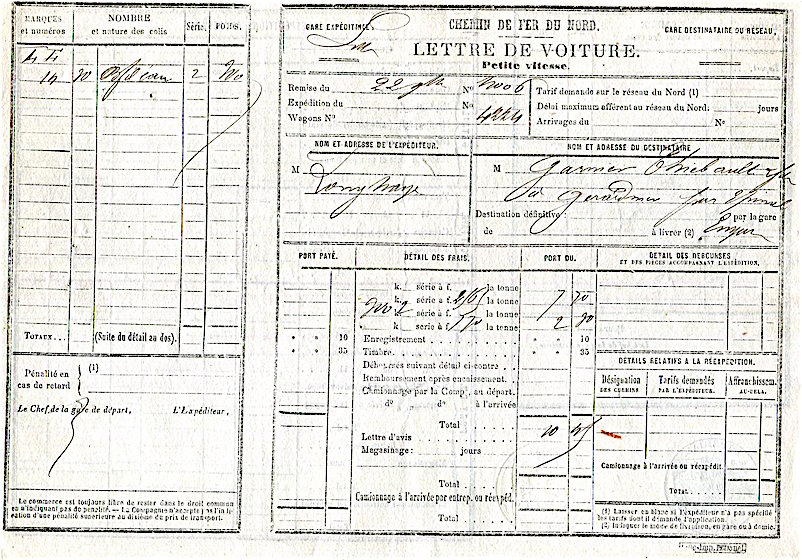 MARQUES
et numéros
NOMBRE
et nature des colis
Série.
POIDS.
2
TOTAUX...
(Suite du détail au dos).
Pénalité en
cas de retard
(1)
Le Chef de la gare de départ,
L'Expéditeur,
Le commerce est toujours libre de rester dans le droit commun
en n'indiquant pas de pénalité. — La Compagnie n'accepte pas l'in
cation d'une pénalité supérieure au dixième du prix de transport.
GARE EXPÉDITRICE:
CHEMIN DE FER DU NORD.
GARE DESTINATAIRE DU RÉSEAU,
LETTRE DE VOITURE.
Petite vitesse.
Remise du
22
No
Expédition du
No
4224
Wagons No
Tarif demandé sur le réseau du Nord (1)
Délai maximum afférent au réseau du Nord:
jours
Arrivages du
No
NOM ET ADRESSE DE L'EXPÉDITEUR.
M
Longhaye
NOM ET ADRESSE DU DESTINATAIRE
M
Garnier Thiebault
à Gerardmer par
Destination définitive:
par la gare
de
à livrer (2)
PORT PAYÉ.
DÉTAIL DES FRAIS.
PORT DU.
k. série à f. la tonne
k. série à f. la tonne
k série à f. la tonne
10 Enregistrement 10
35 Timbre 35
Débourses suivant détail ci-contre
Remboursement après encaissement.
Camionnage par la Compie au départ.
do do à l'arrivée
Total
Lettre d'avis
10 45
Magasinage: jours
Total
Camionnage à l'arrivée par entrep. ou réexpéd.
Total
DÉTAIL DES DÉBOURSÉS
ET DES PIÈCES ACCOMPAGNANT L'EXPÉDITION.
DÉTAILS RELATIFS A LA RÉEXPÉDITION.
Désignation
DES CHEMINS
Tarifs demandés
PAR L'EXPÉDITEUR.
Affranchissem.
AU-DELA.
Camionnage à l'arrivée ou réexpédit.
Total
(1) Laisser en blanc si l'expéditeur n'a pas spécifié
les tarifs dont il demande l'application.
(2) Indiquer le mode de livraison, en gare ou à domic.